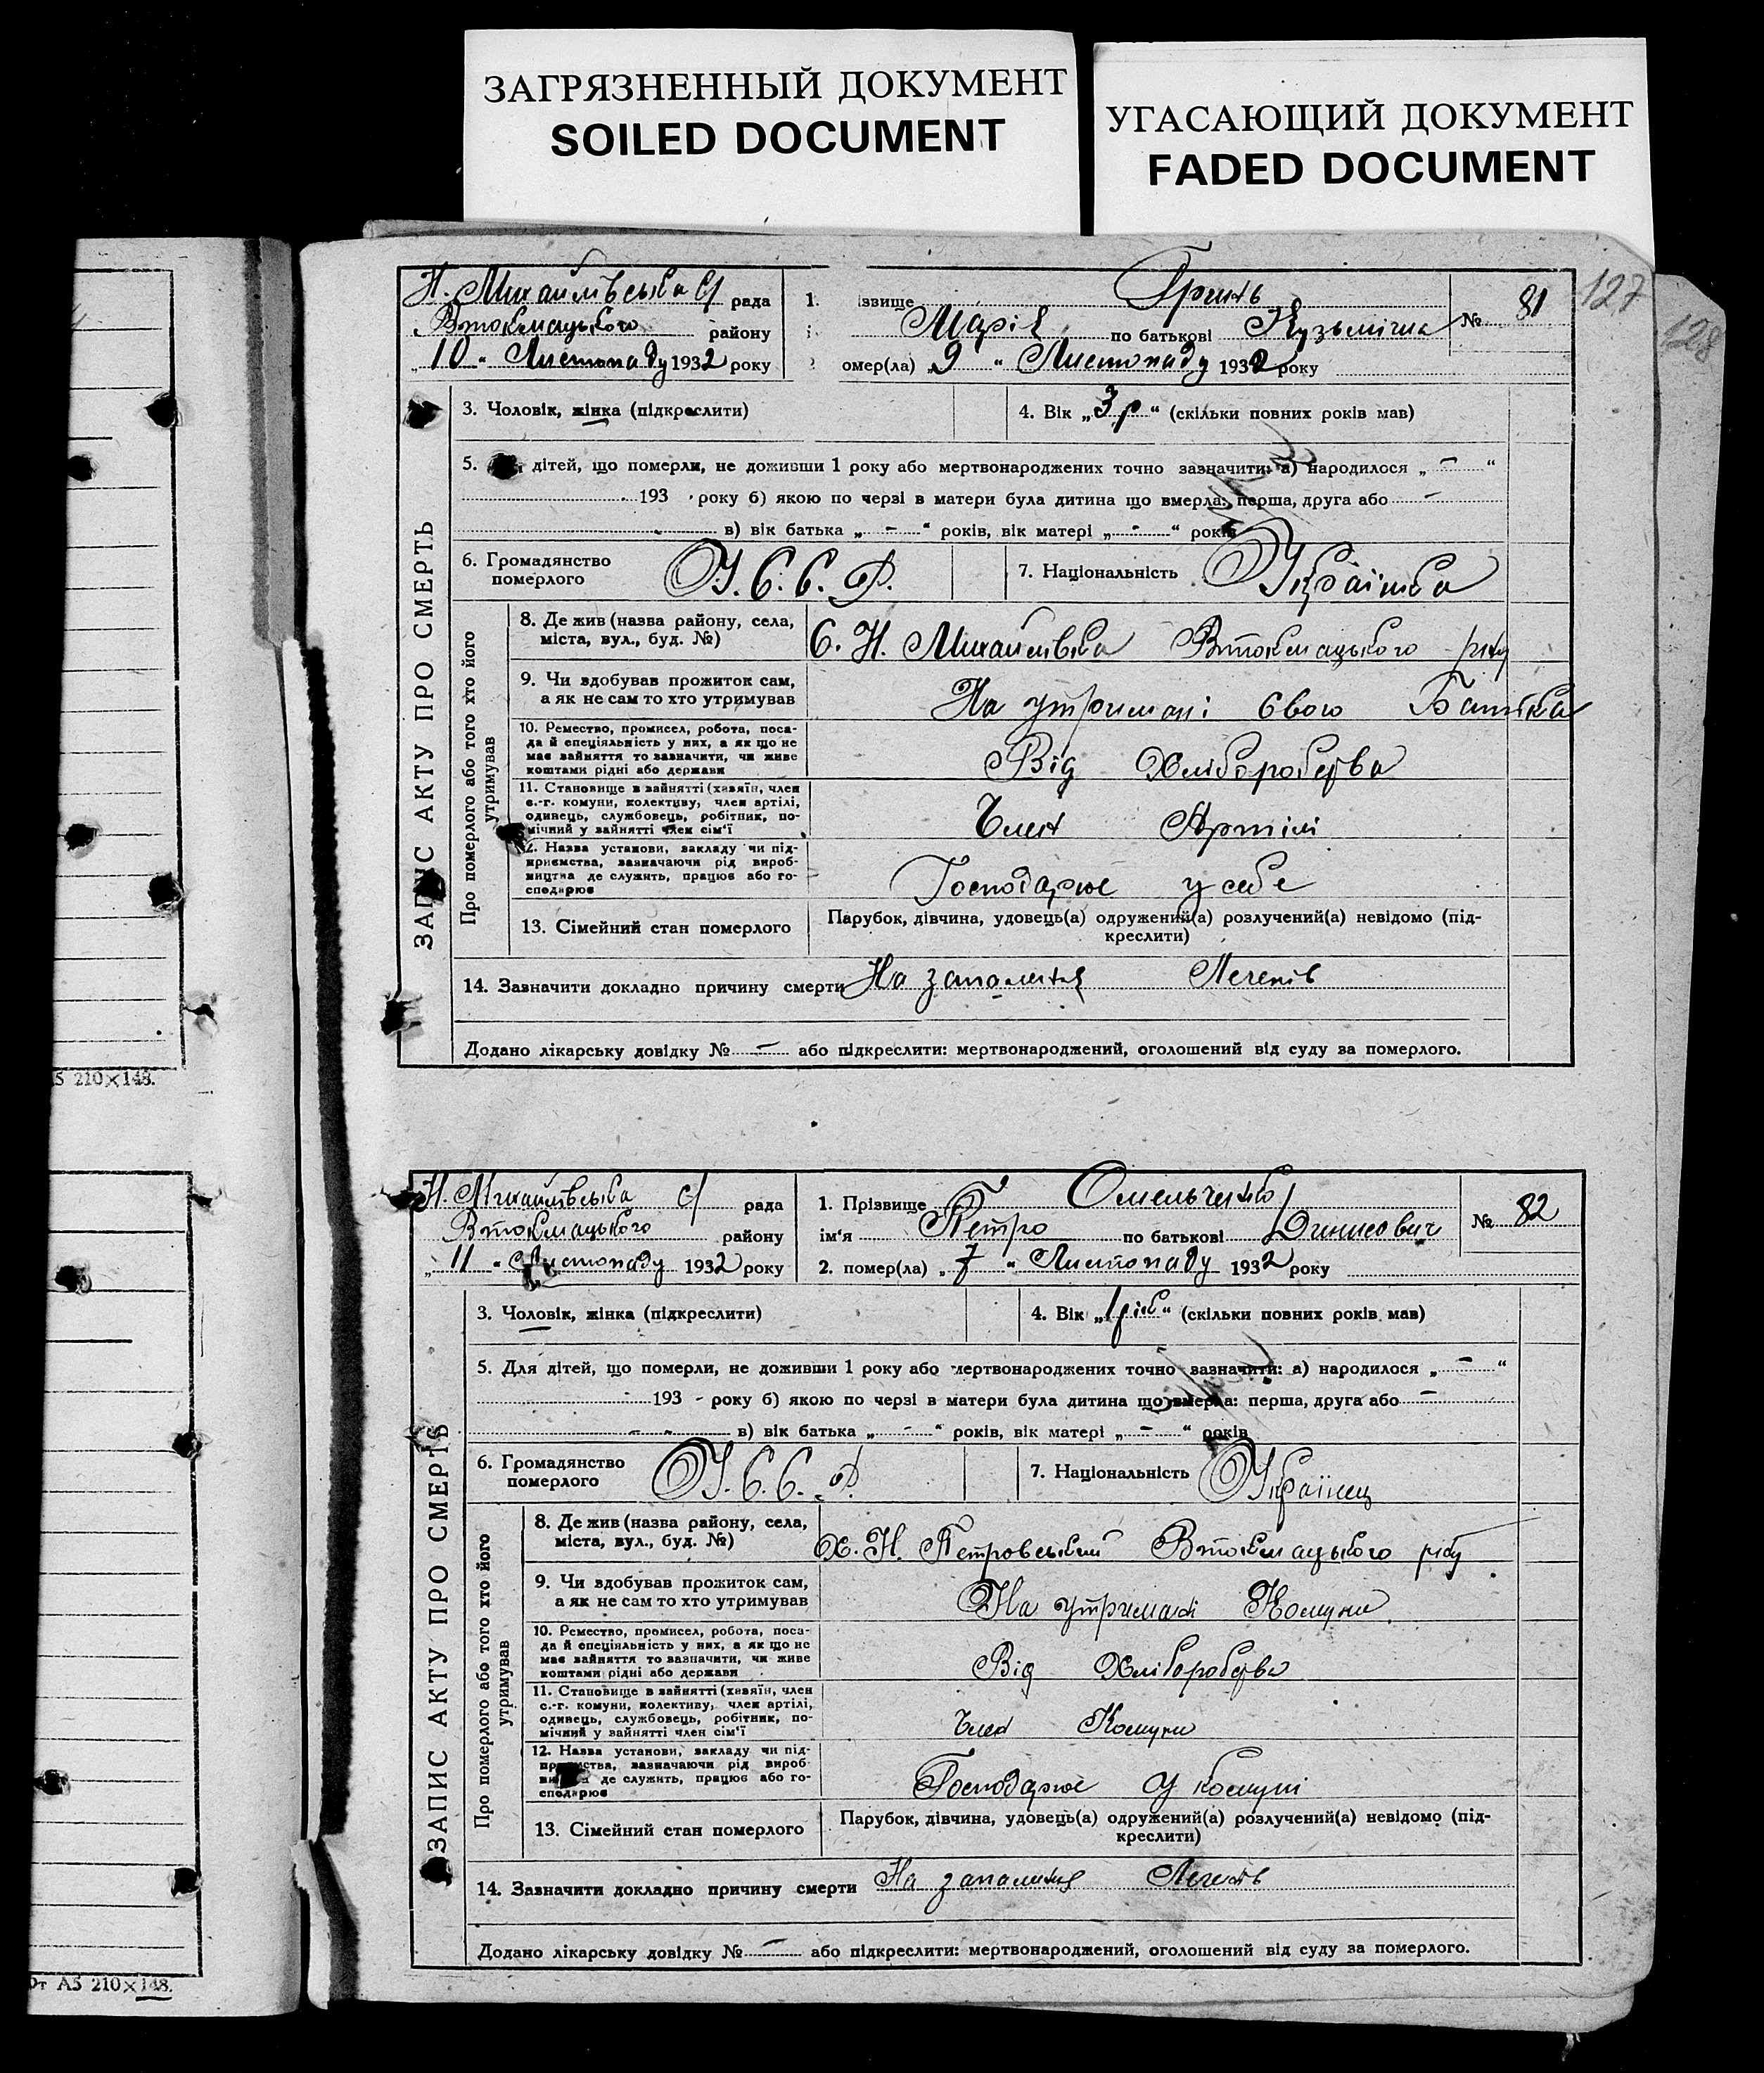 ЗАГРЯЗНЕННЫЙ ДОКУМЕНТ
SOILED DOCUMENT
УГАСАЮЩИЙ ДОКУМЕНТ
FADED DOCUMENT
127
128
Н. Михайлівська с/ рада
Втокмацького району
„10“ Листопаду 1932 року
1. ізвище Гринь
Марія по батькові Кузьмінична
№ 81
омер(ла) „9“ Листопаду 1932 року
3. Чоловік, жінка (підкреслити)
4. Вік „3 р“ (скільки повних років мав)
5. дітей, що померли, не доживши 1 року або мертвонароджених точно зазначити: а) народилося „ – “
193 року б) якою по черзі в матери була дитина що вмерла: перша, друга або –
в) вік батька „ – “ років, вік матері „ – “ років
6. Громадянство померлого У.С.С.Р.
7. Національність Українка
ЗАПИС АКТУ ПРО СМЕРТЬ
Про померлого або того хто його утримував
8. Де жив (назва району, села,
міста, вул., буд. №)
С. Н. Михайлівка Втокмацького р-ну
9. Чи здобував прожиток сам,
а як не сам то хто утримував
На утримані свого Батька
10. Ремество, промисел, робота, поса-
да й спеціяльність у них, а як що не
має зайняття то зазначити, чи живе
коштами рідні або держави
Від Хліборобства
11. Становище в зайнятті (хазяїн, член
с.-г. комуни, колективу, член артілі,
одинець, службовець, робітник, по-
мічний у зайнятті член сім'ї
Член Артілі
12. Назва установи, закладу чи під-
приємства, зазначаючи рід вироб-
ництва де служить, працює або го-
сподарює
Господарює у себе
13. Сімейний стан померлого
Парубок, дівчина, удовець(а) одружений(а) розлучений(а) невідомо (під-
креслити)
14. Зазначити докладно причину смерти На запалення Легенів
Додано лікарську довідку № – або підкреслити: мертвонароджений, оголошений від суду за померлого.
5 210×148.
Н. Михайлівська с/ рада
Втокмацького району
„11“ Листопаду 1932 року
1. Прізвище Омельченко
ім'я Петро по батькові Динисович
№ 82
2. помер(ла) „7“ Листопаду 1932 року
3. Чоловік, жінка (підкреслити)
4. Вік „1 рік“ (скільки повних років мав)
5. Для дітей, що померли, не доживши 1 року або мертвонароджених точно зазначити: а) народилося „ – “
193 - року б) якою по черзі в матери була дитина що вмерла: перша, друга або –
в) вік батька „ – “ років, вік матері „ – “ років
6. Громадянство померлого У.С.С.Р.
7. Національність Українец
ЗАПИС АКТУ ПРО СМЕРТЬ
Про померлого або того хто його утримував
8. Де жив (назва району, села,
міста, вул., буд. №)
Х. Н. Петровський Втокмацького р-ну
9. Чи здобував прожиток сам,
а як не сам то хто утримував
На утримані Комуни
10. Ремество, промисел, робота, поса-
да й спеціяльність у них, а як що не
має зайняття то зазначити, чи живе
коштами рідні або держави
Від Хліборобства
11. Становище в зайнятті (хазяїн, член
с.-г. комуни, колективу, член артілі,
одинець, службовець, робітник, по-
мічний у зайнятті член сім'ї
Член Комуни
12. Назва установи, закладу чи під-
приємства, зазначаючи рід вироб-
де служить, працює або го-
сподарює
Господарює у комуні
13. Сімейний стан померлого
Парубок, дівчина, удовець(а) одружений(а) розлучений(а) невідомо (під-
креслити)
14. Зазначити докладно причину смерти На запалення Легенів
Додано лікарську довідку № – або підкреслити: мертвонароджений, оголошений від суду за померлого.
от А5 210×148.